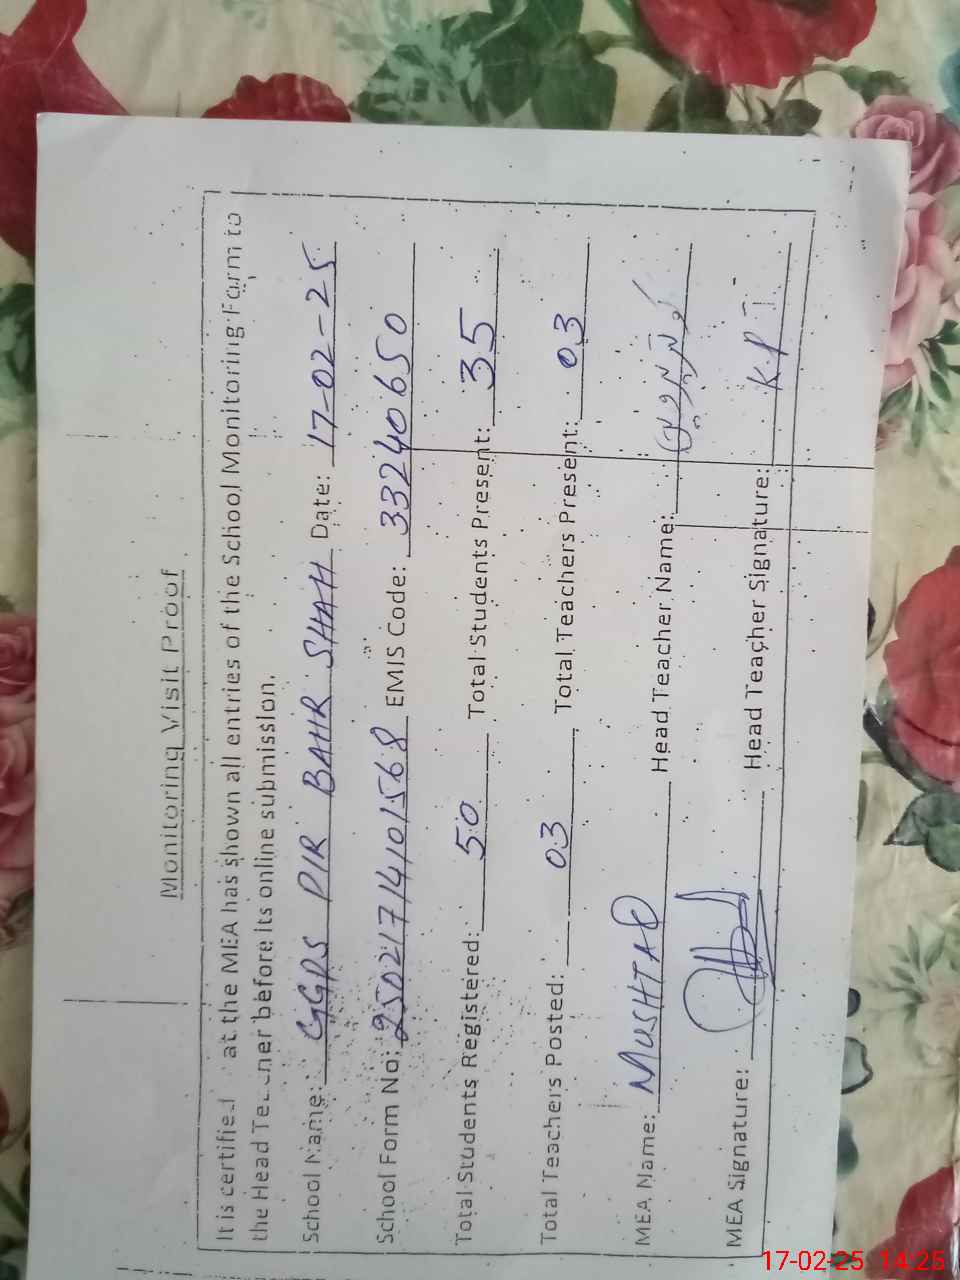 Monitoring Visit Proof
It is certified at the MEA has shown all entries of the School Monitoring Form to
the Head Teacher before its online submission.
School Name: GGPS PIR BAHR SHAH Date: 17-02-25
School Form No: 25021714101568 EMIS Code: 33240650
Total Students Registered: 50 Total Students Present: 35
Total Teachers Posted: 03 Total Teachers Present: 03
MEA Name: MUSHTAQ Head Teacher Name:
MEA Signature: Head Teacher Signature: K.P
17-02-25 14:25